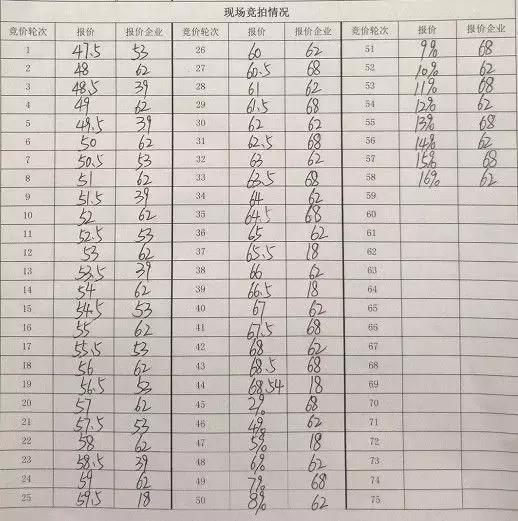 现场竞拍情况
竞价轮次 报价 报价企业 竞价轮次 报价 报价企业 竞价轮次 报价 报价企业
1 47.5 53 26 60 62 51 9% 68
2 48 62 27 60.5 68 52 10% 62
3 48.5 39 28 61 62 53 11% 68
4 49 62 29 61.5 68 54 12% 62
5 49.5 39 30 62 62 55 13% 68
6 50 62 31 62.5 68 56 14% 62
7 50.5 53 32 63 62 57 15% 68
8 51 62 33 63.5 68 58 16% 62
9 51.5 39 34 64 62 59
10 52 62 35 64.5 68 60
11 52.5 53 36 65 62 61
12 53 62 37 65.5 18 62
13 53.5 39 38 66 62 63
14 54 62 39 66.5 18 64
15 54.5 53 40 67 62 65
16 55 62 41 67.5 68 66
17 55.5 53 42 68 62 67
18 56 62 43 68.5 68 68
19 56.5 53 44 68.54 18 69
20 57 62 45 2% 68 70
21 57.5 53 46 4% 62 71
22 58 62 47 5% 18 72
23 58.5 39 48 6% 62 73
24 59 62 49 7% 68 74
25 59.5 18 50 8% 62 75